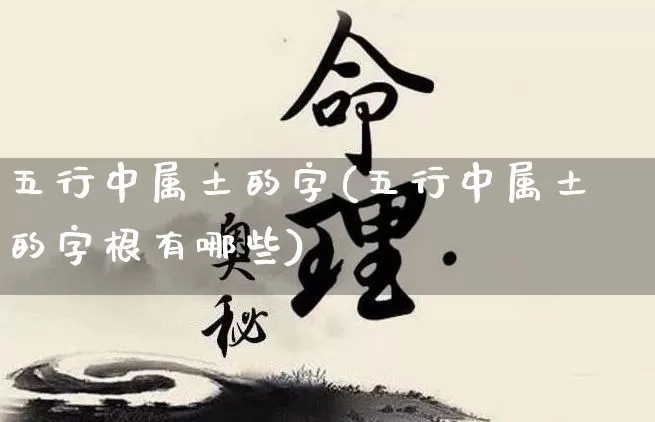 命理·
奥秘
五行中属土的字(五行中属土
的字根有哪些)